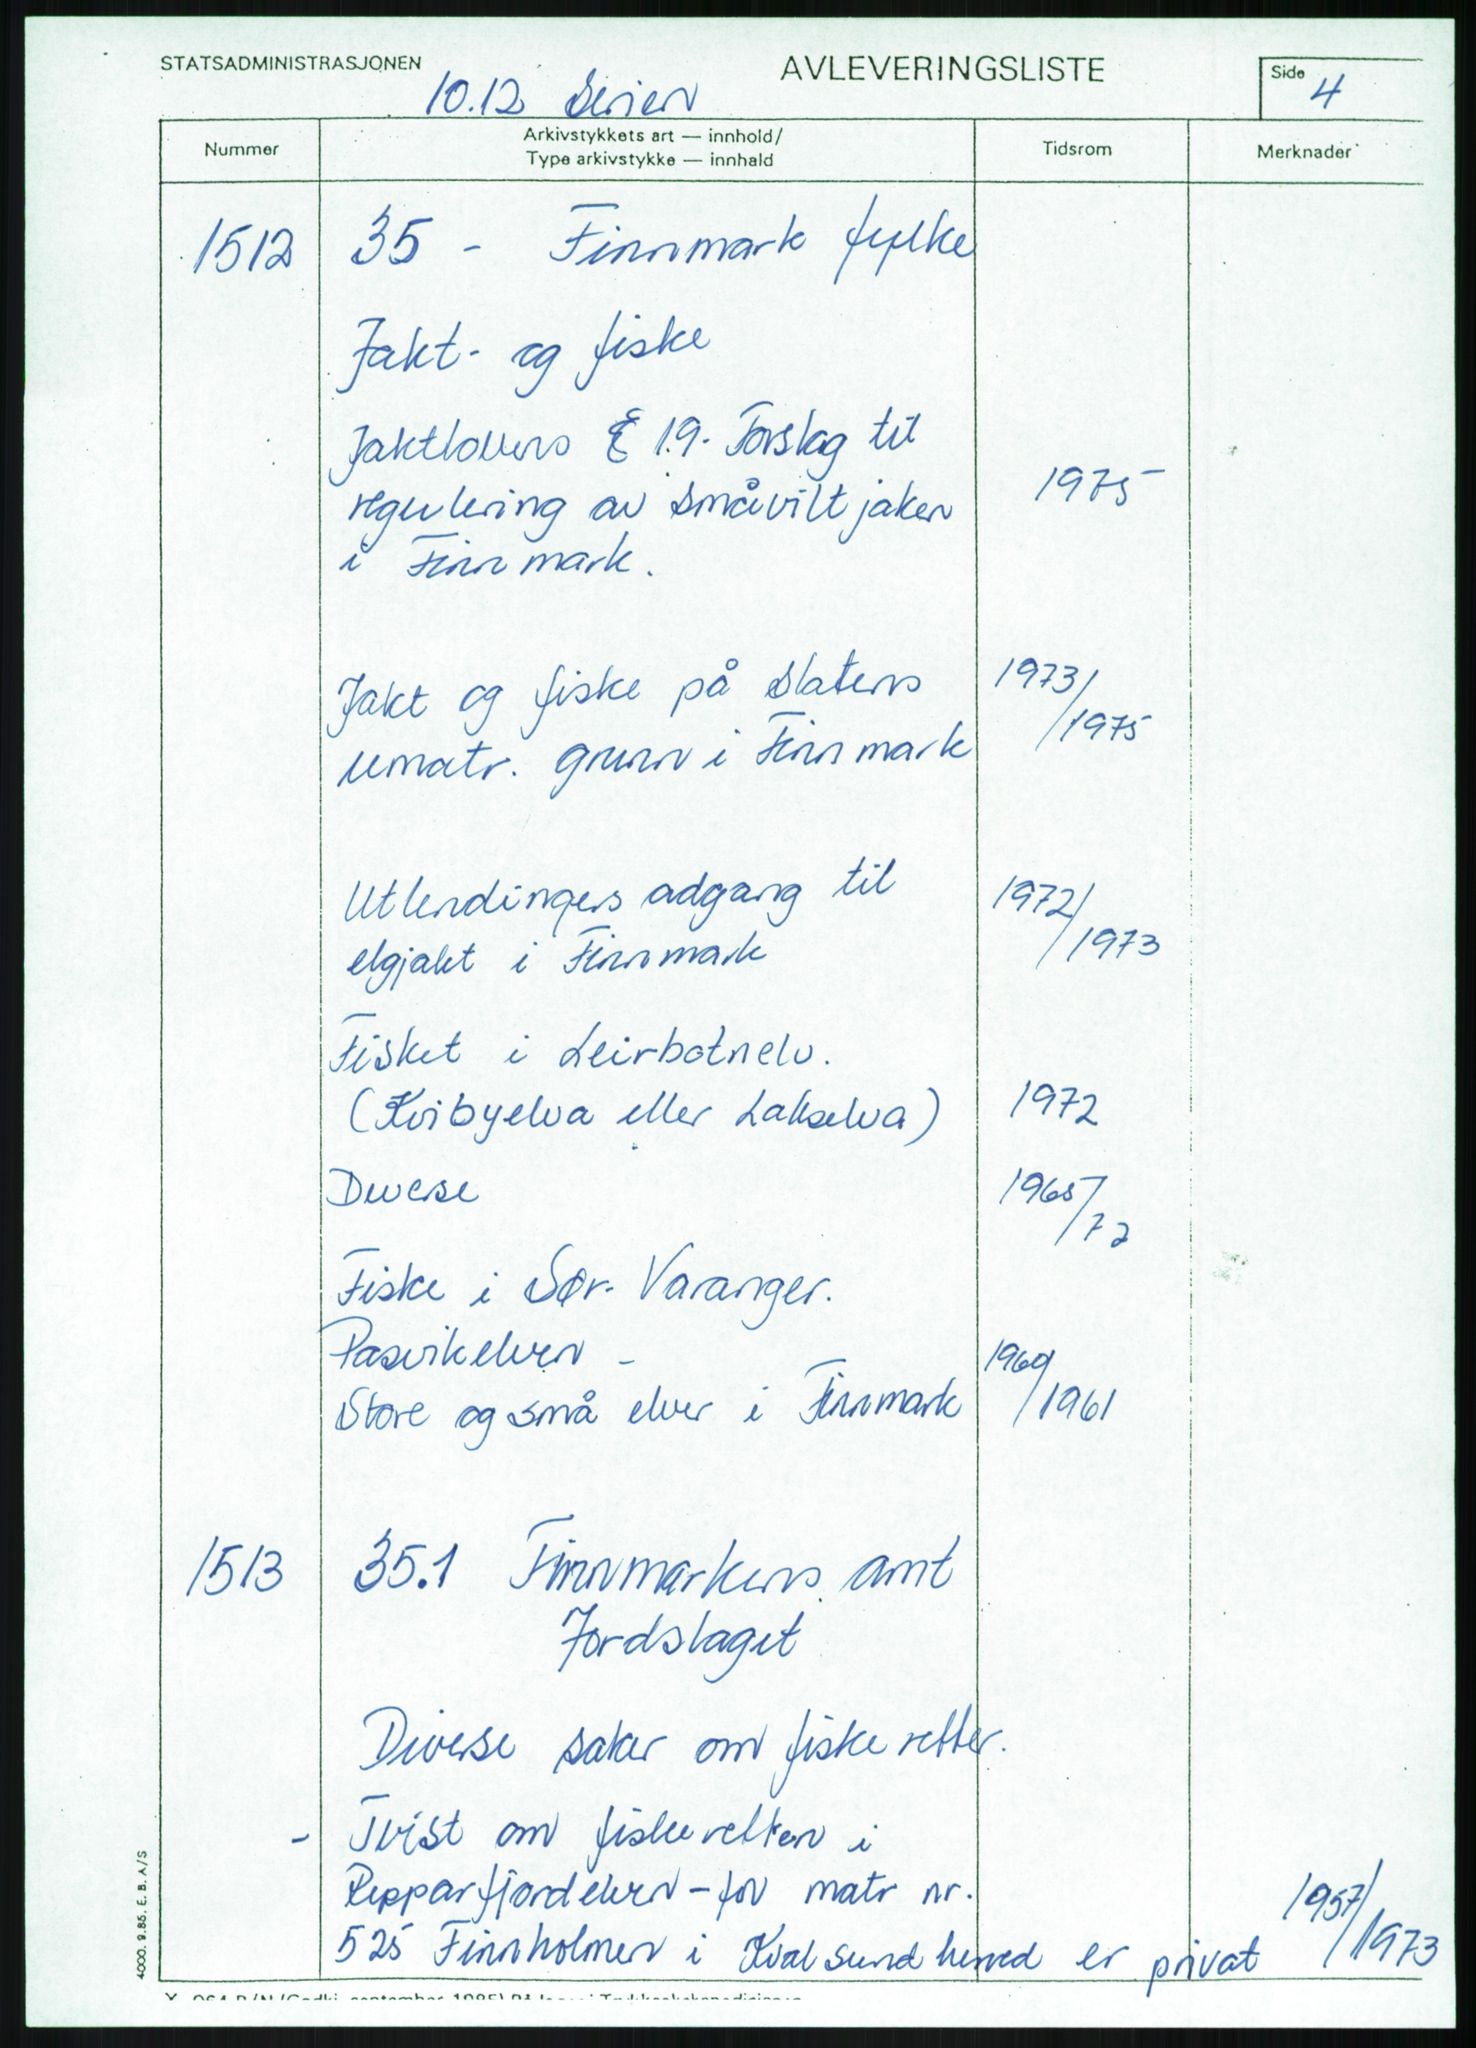 STATSADMINISTRASJONEN
AVLEVERINGSLISTE
Side 4
10.12 Serien
Nummer
Arkivstykkets art — innhold/
Type arkivstykke — innhald
Tidsrom
Merknader
1512 35 - Finnmark fylke
Jakt- og fiske
Jaktlovens § 19. Forslag til
regulering av småviltjaken 1975
i Finnmark.
Jakt og fiske på statens 1973/
umatr. grunn i Finnmark /1975
Utlendingers adgang til 1972/
elgjakt i Finnmark /1973
Fisket i Leirbotnelv.
(Kvibyelva eller Lakselva) 1972
Diverse 1965/
72
Fiske i Sør-Varanger.
Pasvikelven - 1960/
Store og små elver i Finnmark /1961
1513 35.1 Finnmarkens amt
Jordslaget
Diverse saker om fiskeretter.
- Tvist om fiskeretten i
Repparfjordelven - for matr nr. 1957/
525 Finnholmen i Kvalsund herred er privat /1973
4000. 9.85. E. B. A/S